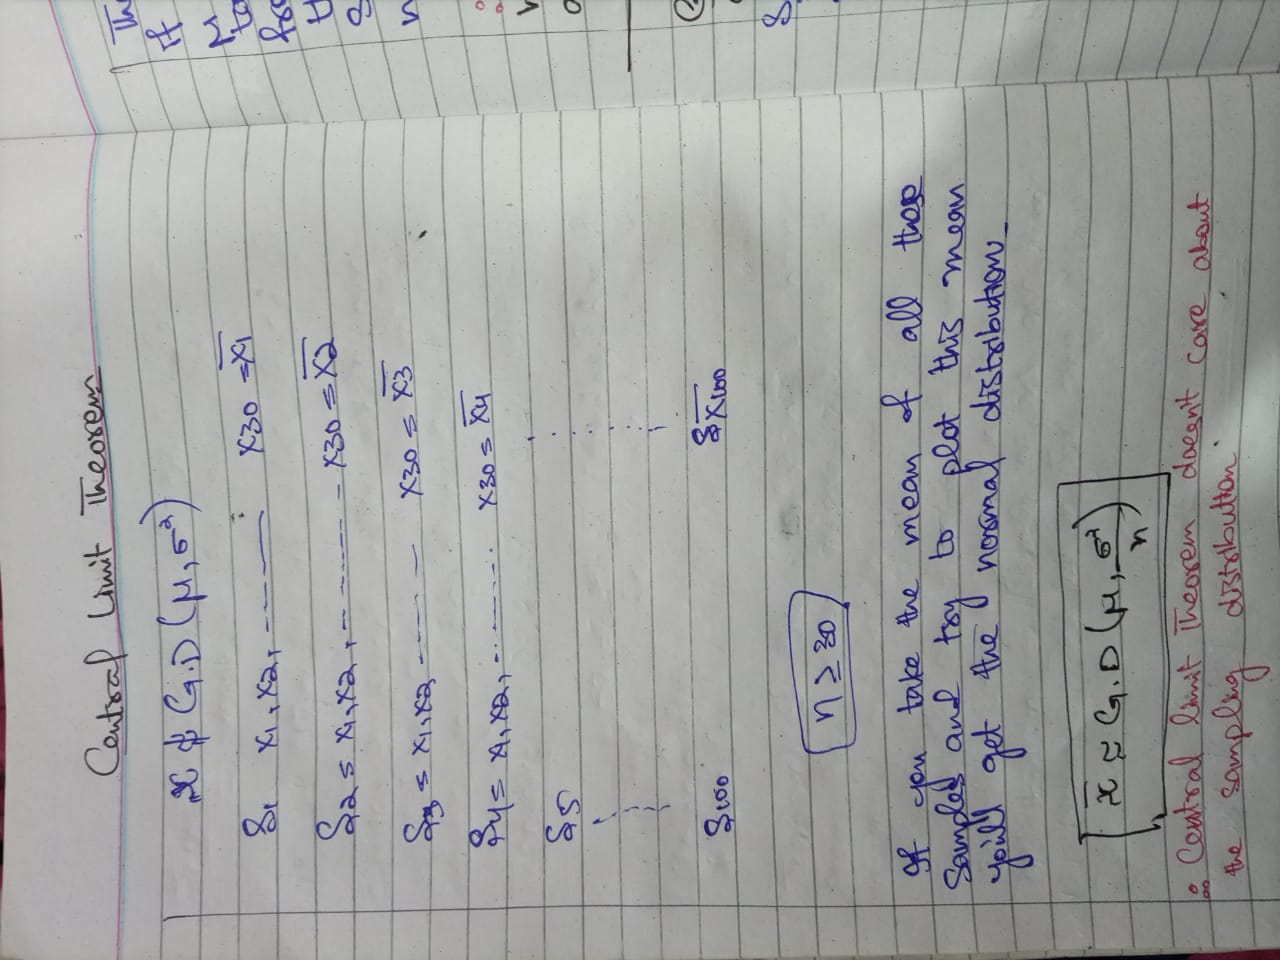 Central Limit Theorem
x ≉ G.D (μ, σ²)
S1 x1, x2, ------ x30 = x̄1
S2 = x1, x2, ------- x30 = x̄2
S3 = x1, x2, ------ x30 = x̄3
S4 = x1, x2, ------- x30 = x̄4
S5
S100 x̄100
n ≥ 30
If you take the mean of all these
Samples and try to plot this mean
you'll get the normal distribution
x̄ ≈ G.D (μ, σ²/n)
∴ Central limit Theorem doesn't care about
the sampling distribution
The
if
μ
n